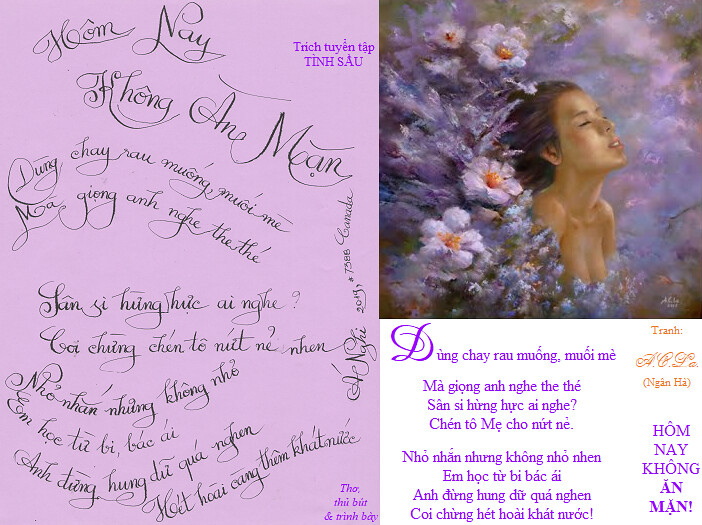 Hôm Nay
Không Ăn Mặn
Trích tuyển tập
TÌNH SẦU
Dùng chay rau muống, muối mè
Mà giọng anh nghe the thé
Sân si hừng hực ai nghe?
Coi chừng chén tô nứt nẻ nhen
Nhỏ nhắn nhưng không nhỏ
Em học từ bi, bác ái
Anh đừng hung dữ quá nghen
Hét hoài càng thêm khát nước
Á Nghi 2019, # 7388 Canada
Thơ,
thủ bút
& trình bày
Dùng chay rau muống, muối mè
Mà giọng anh nghe the thé
Sân si hừng hực ai nghe?
Chén tô Mẹ cho nứt nẻ.
Nhỏ nhắn nhưng không nhỏ nhen
Em học từ bi bác ái
Anh đừng hung dữ quá nghen
Coi chừng hét hoài khát nước!
Tranh:
(Ngân Hà)
HÔM
NAY
KHÔNG
ĂN
MẶN!